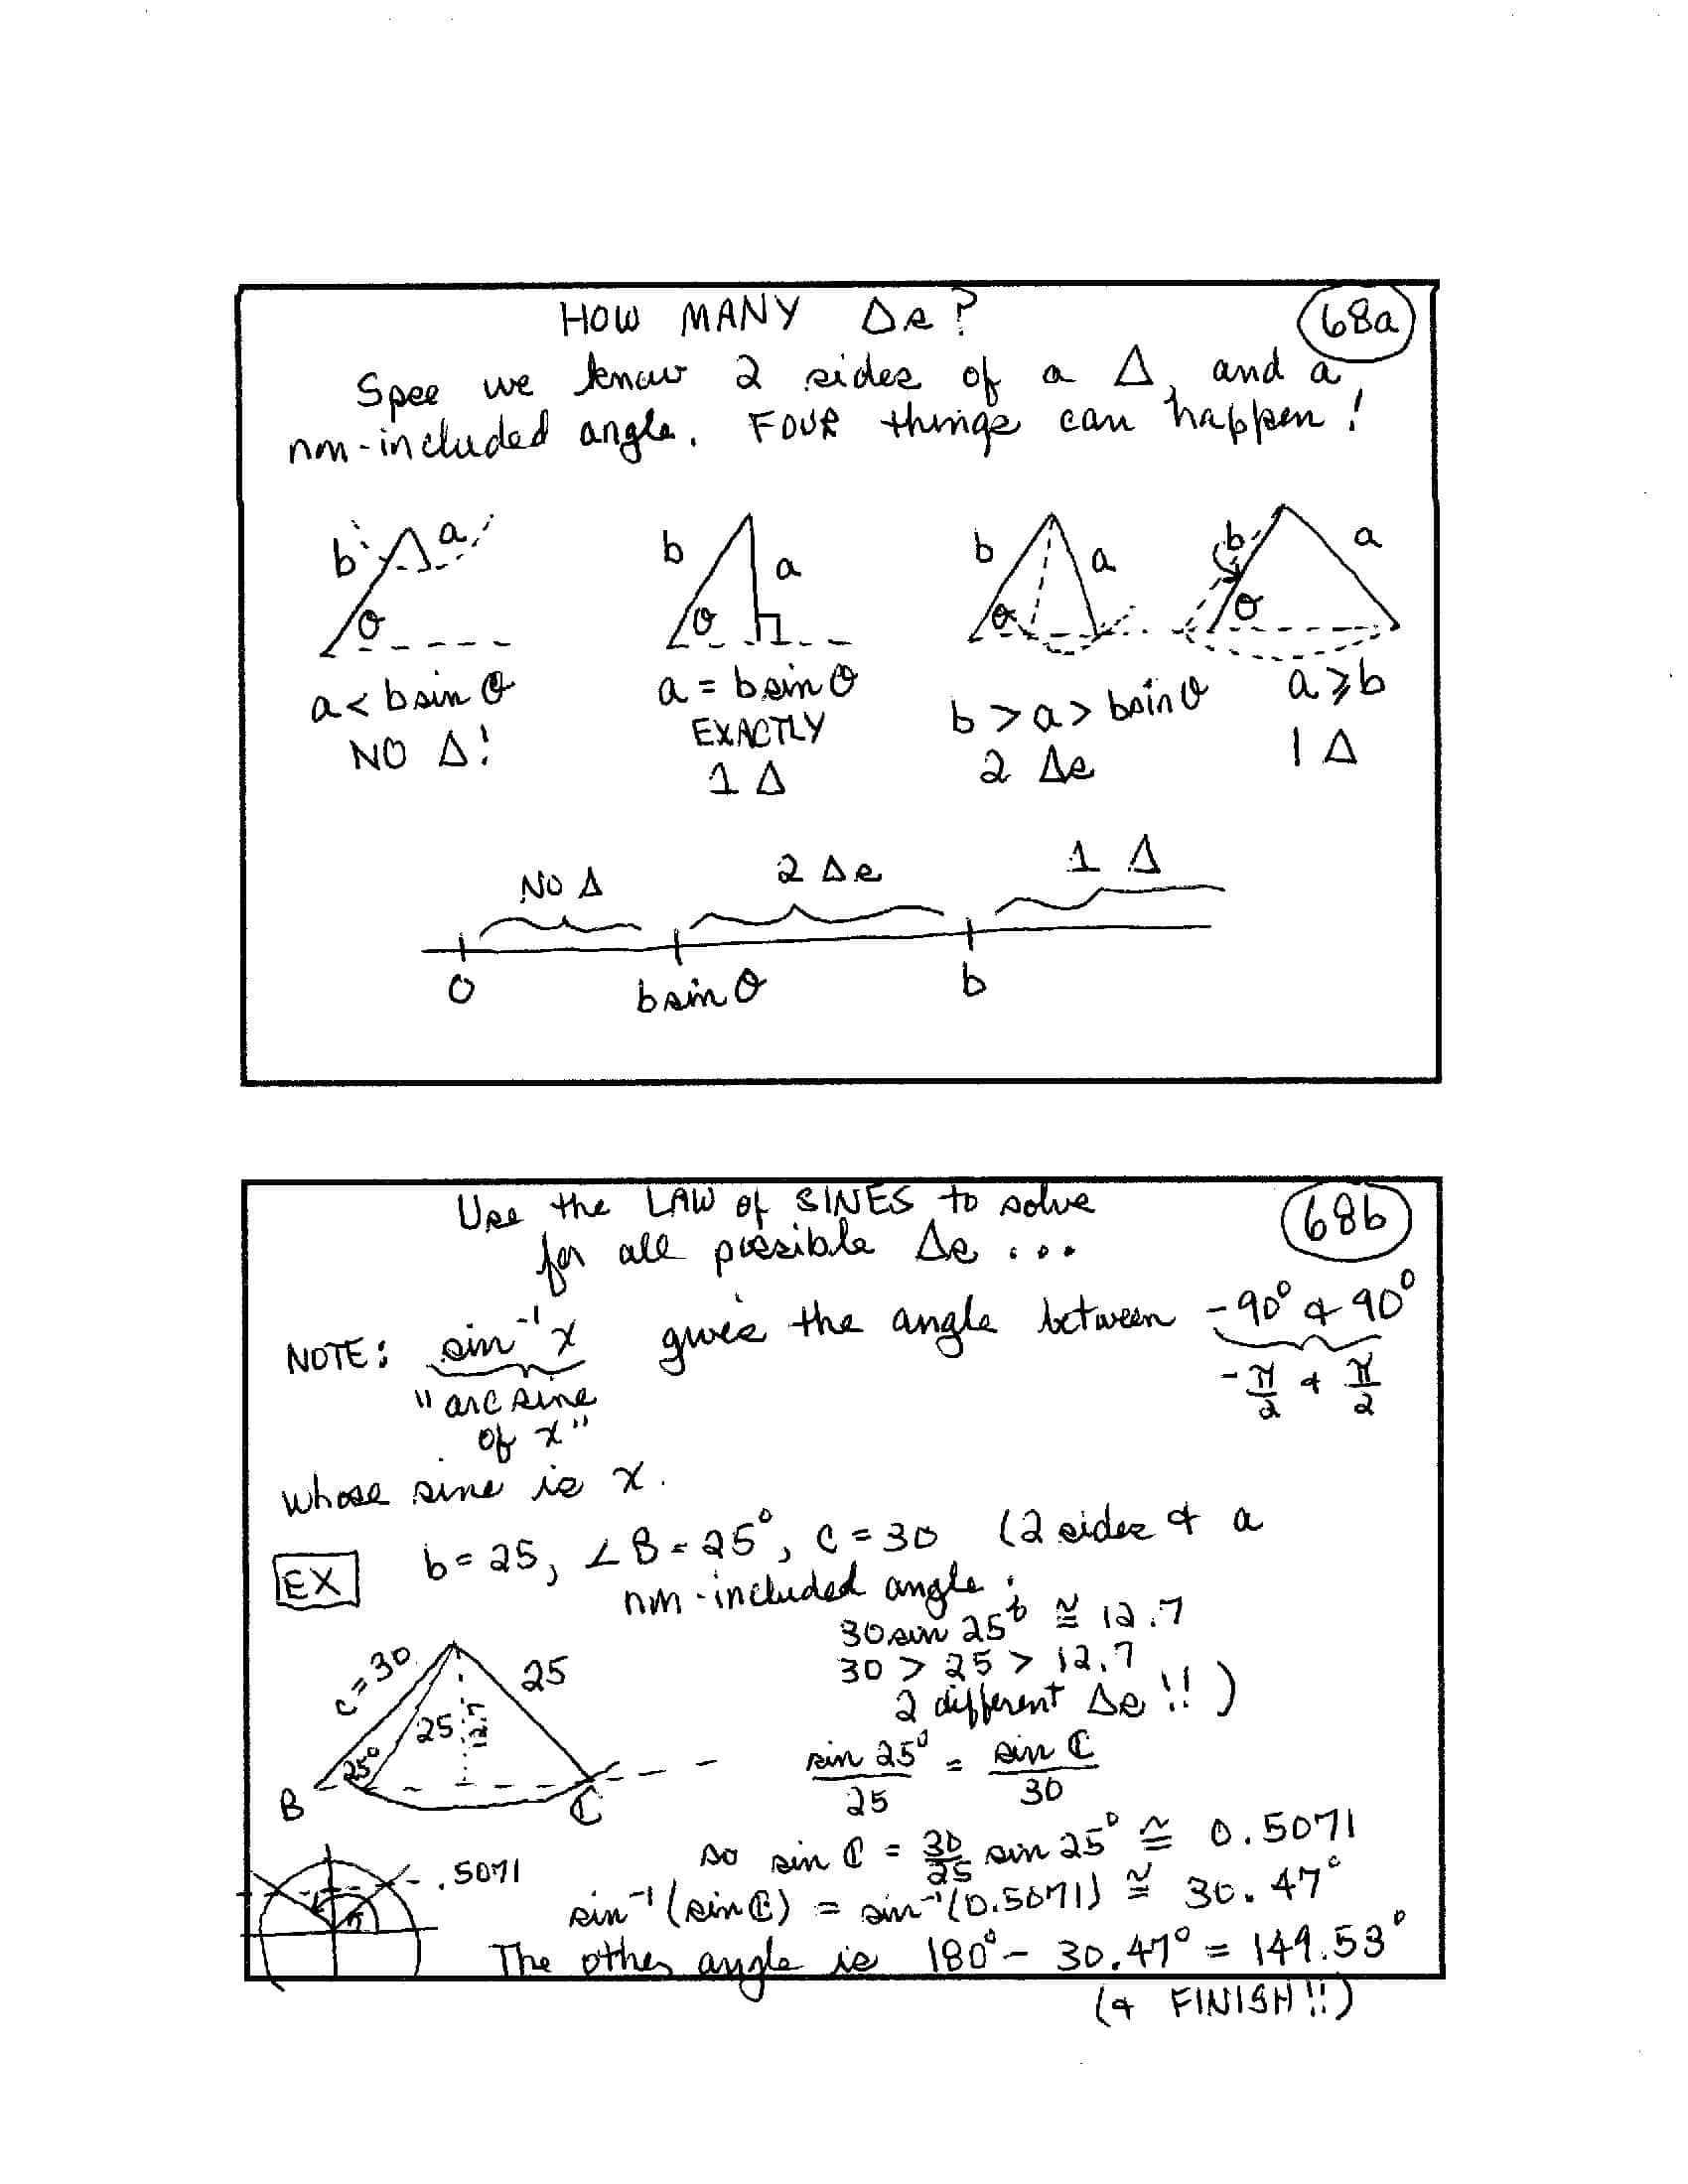 HOW MANY Δs?
68a
Spse we know 2 sides of a Δ, and a
non-included angle. FOUR things can happen!
b a θ
b a θ
b a θ
b a θ
a < b sin θ
NO Δ!
a = b sin θ
EXACTLY
1 Δ
b > a > b sin θ
2 Δs
a ⩾ b
1 Δ
NO Δ 2 Δs 1 Δ
0 b sin θ b
Use the LAW of SINES to solve
68b
for all possible Δs ...
NOTE: sin⁻¹ x gives the angle between -90° & 90°
"arc sine
of x"
-π/2 & π/2
whose sine is x.
EX b = 25, ∠B = 25°, c = 30 (2 sides & a
non-included angle.
30 sin 25° ≅ 12.7
30 > 25 > 12.7
2 different Δs !! )
c = 30 25
25 12.7
25°
B C
sin 25°/25 = sin C/30
so sin C = 30/25 sin 25° ≅ 0.5071
.5071
sin⁻¹(sin C) = sin⁻¹(0.5071) ≅ 30.47°
The other angle is 180° - 30.47° = 149.53°
(& FINISH!!)